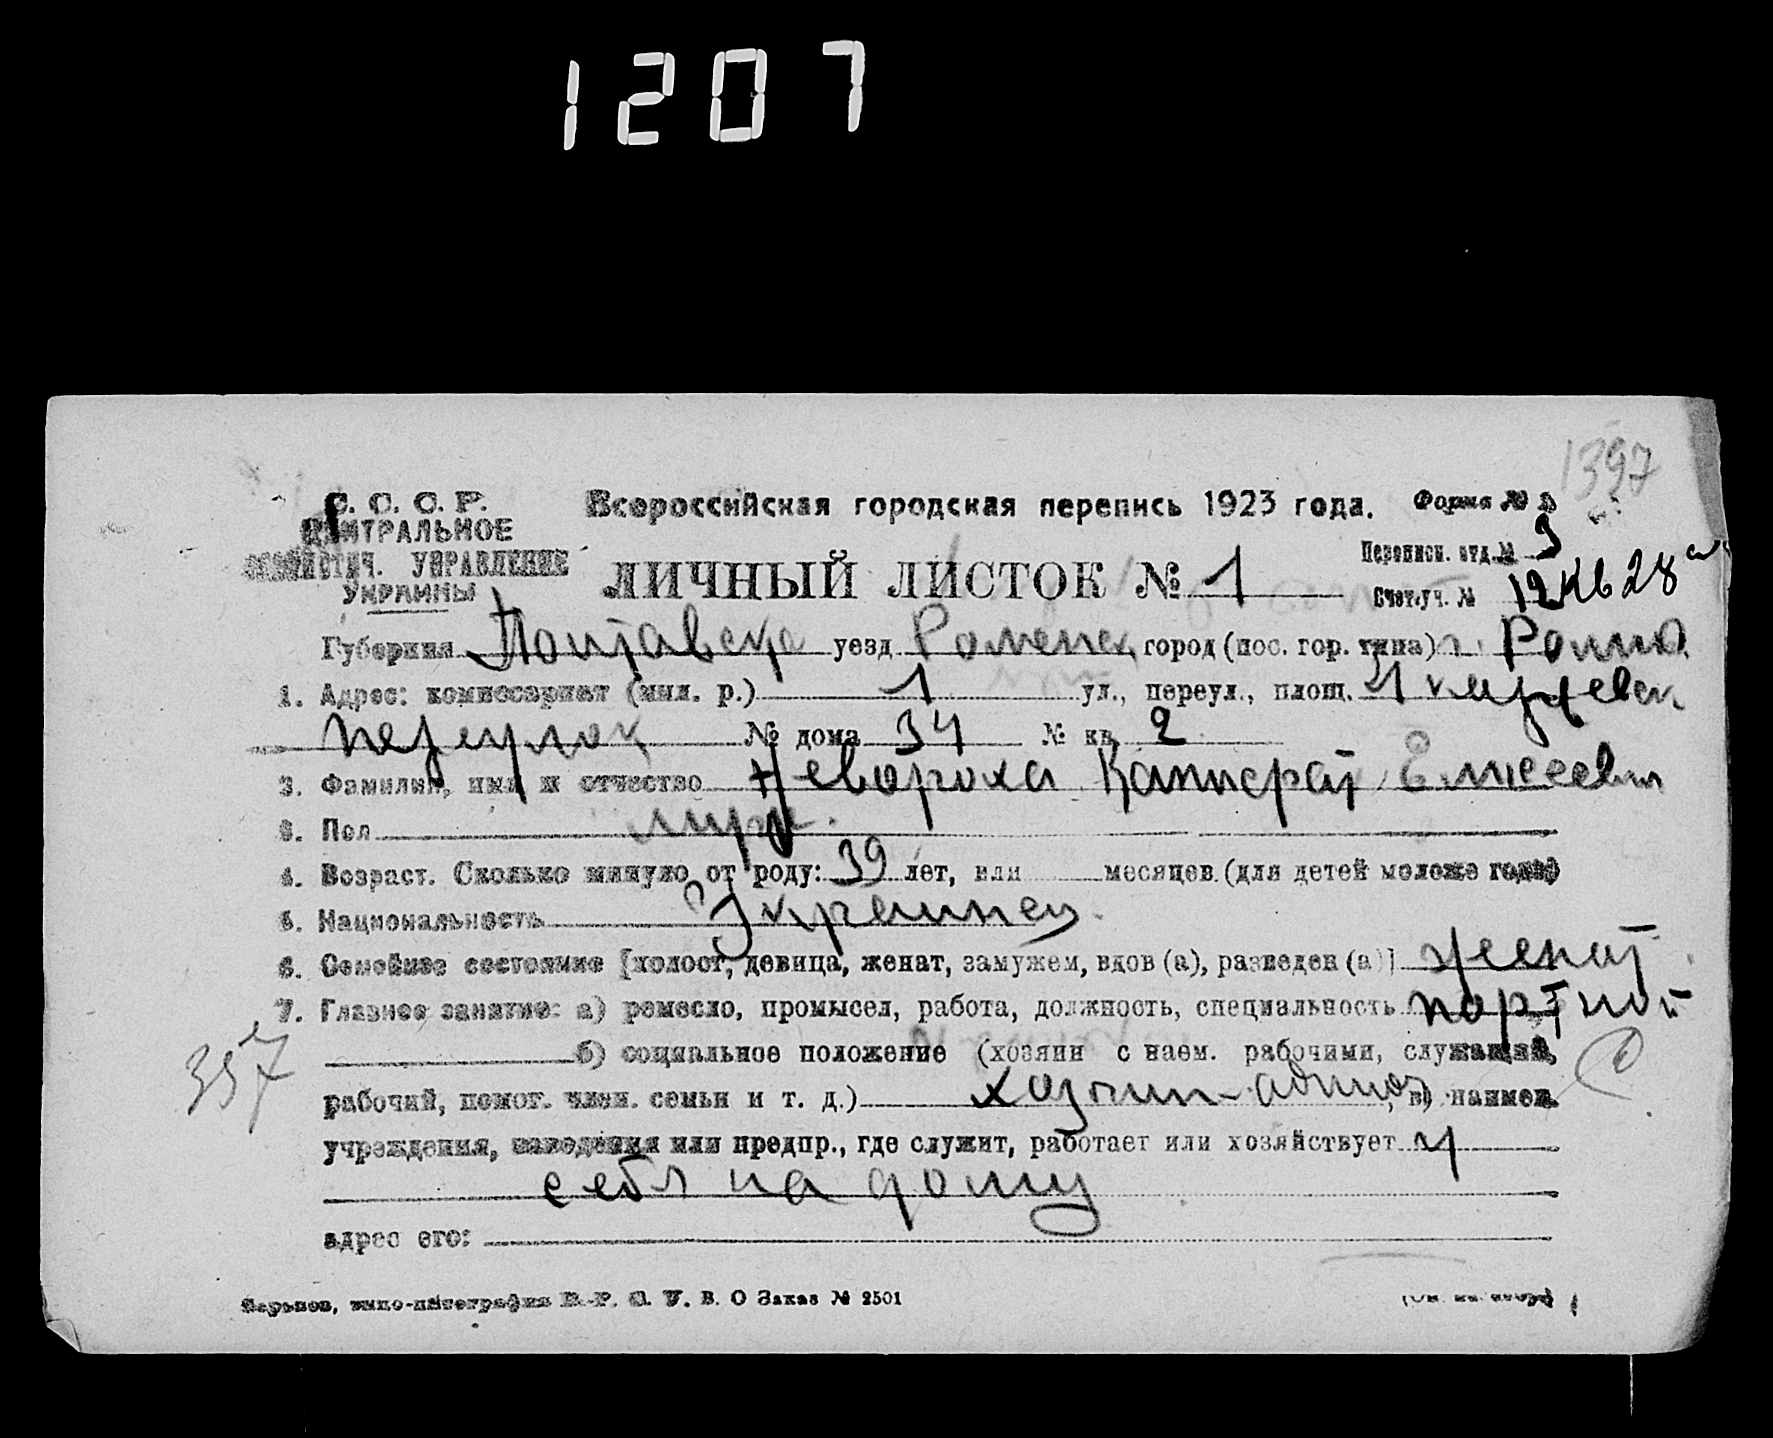 1207
1397
С. С. С. Р.
ЦЕНТРАЛЬНОЕ
СТАТИСТИЧ. УПРАВЛЕНИЕ
УКРАИНЫ
Всероссийская городская перепись 1923 года.
Форма №
ЛИЧНЫЙ ЛИСТОК № 1
Переписн. отд. № 9
Счет. уч. № 12
Губерния Полтавска уезд Роменск город (пос. гор. типа) г. Ромны
1. Адрес: комиссариат (мил. р.) 1 ул., переул., площ. 1
переулок № дома 34 № кв. 2
2. Фамилия, имя и отчество Невороха Елисеевич
3. Пол муж.
4. Возраст. Сколько минуло от роду: 39 лет, или месяцев (для детей моложе года)
5. Национальность Украинец.
6. Семейное состояние [холост, девица, женат, замужем, вдов (а), разведен (а)] женат
7. Главное занятие: а) ремесло, промысел, работа, должность, специальность портной
б) социальное положение (хозяин с наем. рабочими, служащий,
357
рабочий, помог. член. семьи и т. д.) хозяин-одиноч, в) наимен.
учреждения, заведения или предпр., где служит, работает или хозяйствует у
себя на дому
адрес его:
Харьков, типо-литография В. Р. С. У. В. О Заказ № 2501